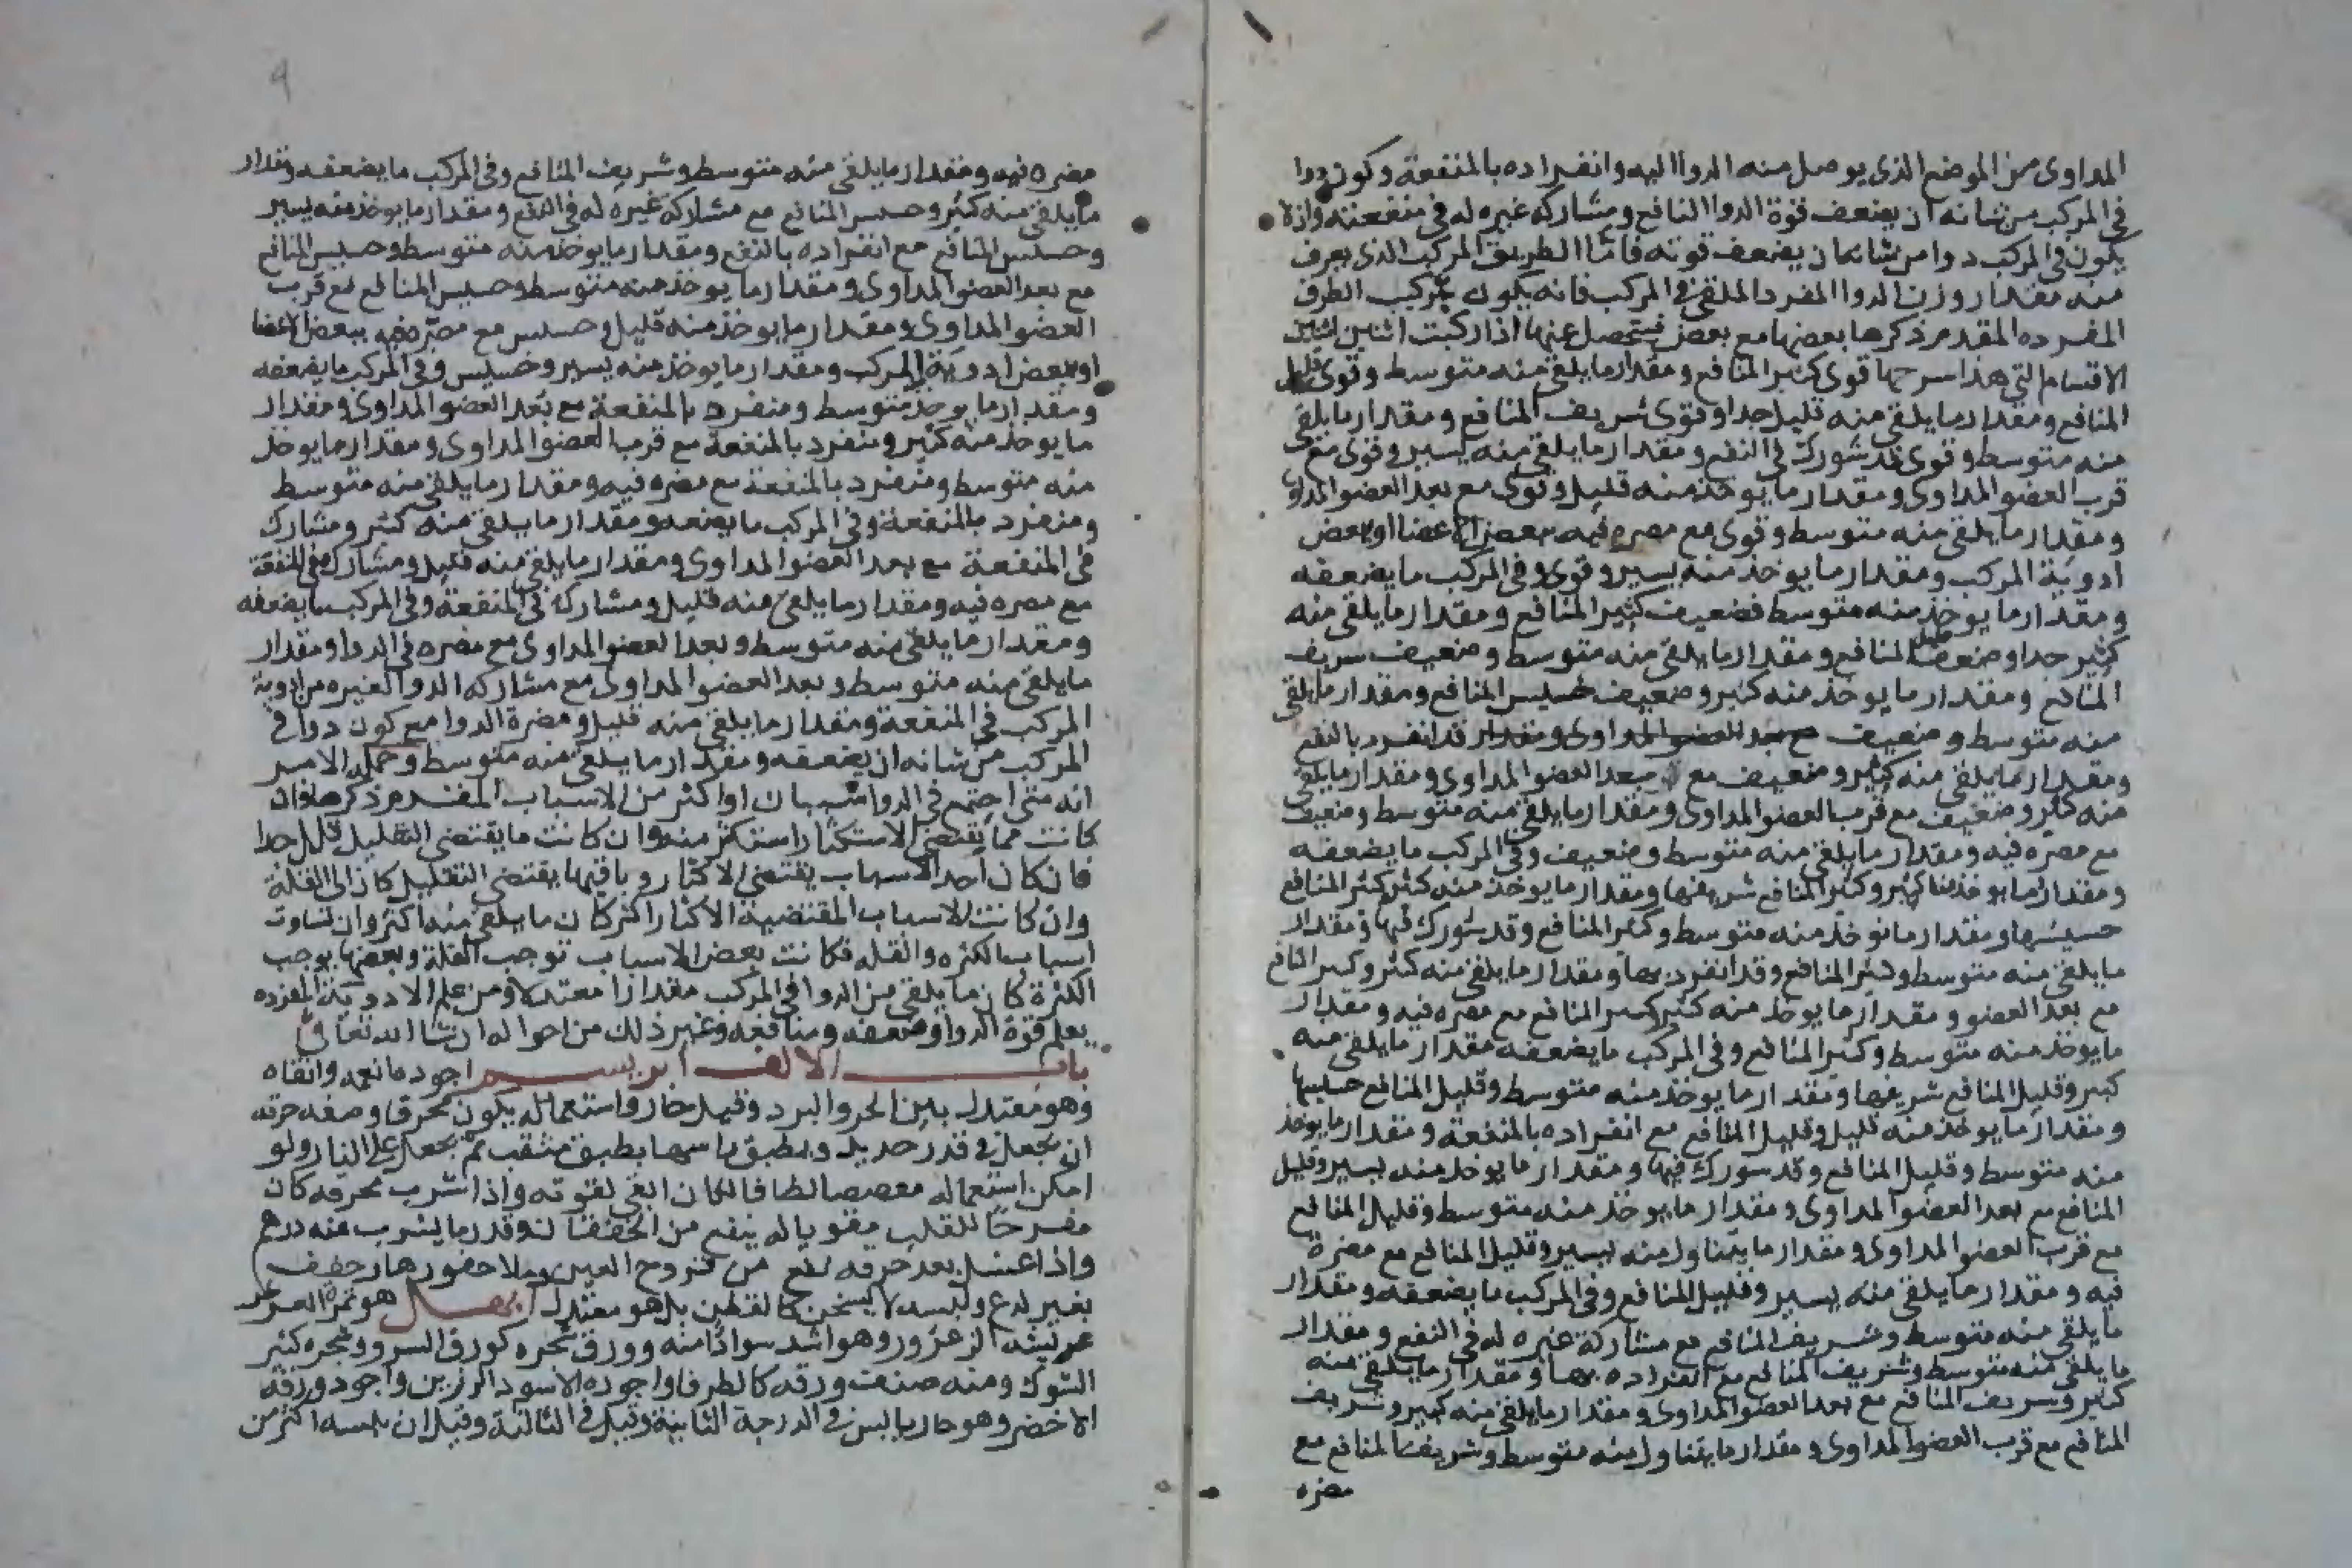 المداوى من الموضع الذى يوصل منه الدواالیه وانفراده بالمنفعة وكون دوا
فى المركب من شانه ان يضعف قوة الدوا النافع ومشاركه غيره له فى منفعته وازلا
يكون فى المركب دوا من شانه ان يضعف قوته فاما الطريق المركب الذى يعرف
منه مقدار وزن الدوا المفرد الملقى فى المركب فانه يكون بتركيب الطرق
المفرده المقدم ذكرها بعضها مع بعض فيتحصل عنها اذا ركبت اثنين اثنين
الاقسام التى هذا شرحها قوى كثير المنافع ومقدار ما يلقى منه متوسط وقوى قليل
المنافع ومقدار ما يلقى منه قليل جدا وقوى شريف المنافع ومقدار ما يلقى
منه متوسط وقوى قد شورك فى النفع ومقدار ما يلقى منه يسير وقوى مع
قرب العضو المداوى ومقدار ما يوخذ منه قليل وقوى مع بعد العضو المداوى
ومقدار ما يلقى منه متوسط وقوى مع مضره فيه ببعض الاعضا او ببعض
ادوية المركب ومقدار ما يوخذ منه يسير وقوى وفى المركب ما يضعفه
ومقدار ما يوخذ منه متوسط فضعيف كثير المنافع ومقدار ما يلقى منه
كثير جدا وضعيف قليل المنافع ومقدار ما يلقى منه متوسط وضعيف شريف
المنافع ومقدار ما يوخذ منه كثير وضعيف خسيس المنافع ومقدار ما يلقى
منه متوسط وضعيف مع بعد العضو المداوى ومقدار قد انفرد بالنفع
ومقدار ما يلقى منه كثير وضعيف مع بعد العضو المداوى ومقدار ما يلقى
منه كثير وضعيف مع قرب العضو المداوى ومقدار ما يلقى منه متوسط وضعيف
مع مضره فيه ومقدار ما يلقى منه متوسط وضعيف وفى المركب ما يضعفه
ومقدار ما يوخذ منها كثير وكثير المنافع شريفها ومقدار ما يوخذ منه كثير كثير المنافع
خسيسها ومقدار ما يوخذ منه متوسط وكثير المنافع وقد شورك فيها ومقدار
ما يلقى منه متوسط وكثير المنافع وقد انفرد بها ومقدار ما يلقى منه كثير وكثير المنافع
مع بعد العضو ومقدار ما يوخذ منه كثير كثير المنافع مع مضره فيه ومقدار
ما يوخذ منه متوسط وكثير المنافع وفى المركب ما يضعفه مقدار ما يلقى منه
كثير وقليل المنافع شريفها ومقدار ما يوخذ منه متوسط وقليل المنافع خسيسها
ومقدار ما يوخذ منه قليل وقليل المنافع مع انفراده بالمنفعة ومقدار ما يوخذ
منه متوسط وقليل المنافع وقد شورك فيها ومقدار ما يوخذ منه يسير وقليل
المنافع مع بعد العضو المداوى ومقدار ما يوخذ منه متوسط وقليل المنافع
مع قرب العضو المداوى ومقدار ما يتناول منه يسير وقليل المنافع مع مضرة
فيه ومقدار ما يلقى منه يسير وقليل المنافع وفى المركب ما يضعفه ومقدار
ما يلقى منه متوسط وشريف المنافع مع مشاركة غيره له فى النفع ومقدار
ما يلقى منه متوسط وشريف المنافع مع انفراده بها ومقدار ما يلقى منه
كثير وشريف المنافع مع بعد العضو المداوى ومقدار ما يلقى منه كثير وشريف
المنافع مع قرب العضو المداوى ومقدار ما يتناول منه متوسط وشريف المنافع مع
مضره
9
مضره فيه ومقدار ما يلقى منه متوسط وشريف المنافع وفى المركب ما يضعفه ومقدار
ما يلقى منه كثير وخسيس المنافع مع مشاركة غيره له فى النفع ومقدار ما يوخذ منه يسير
وخسيس المنافع مع انفراده بالنفع ومقدار ما يوخذ منه متوسط وخسيس المنافع
مع بعد العضو المداوى ومقدار ما يوخذ منه متوسط وخسيس المنافع مع قرب
العضو المداوى ومقدار ما يوخذ منه قليل وخسيس مع مضره فيه ببعض الاعضا
او ببعض ادوية المركب ومقدار ما يوخذ منه يسير وخسيس وفى المركب ما يضعفه
ومقدار ما يوخذ متوسط ومنفرد بالمنفعة مع بعد العضو المداوى ومقدار
ما يوخذ منه كثير ومنفرد بالمنفعة مع قرب العضو المداوى ومقدار ما يوخذ
منه متوسط ومنفرد بالمنفعة مع مضره فيه ومقدار ما يلقى منه متوسط
ومنفرد بالمنفعة وفى المركب ما يضعفه ومقدار ما يلقى منه كثير ومشارك
فى المنفعة مع بعد العضو المداوى ومقدار ما يلقى منه قليل ومشارك فى المنفعة
مع مضره فيه ومقدار ما يلقى منه قليل ومشاركه فى المنفعة وفى المركب ما يضعفه
ومقدار ما يلقى منه متوسط وبعد العضو المداوى مع مضره فى الدوا ومقدار
ما يلقى منه متوسط وبعد العضو المداوى مع مشاركه الدوا لغيره من ادوية
المركب فى المنفعة ومقدار ما يلقى منه قليل ومضرة الدوا مع كون دوا فى
المركب من شانه ان يضعفه ومقدار ما يلقى منه متوسط وجملة الامر
انه متى اجتمع فى الدوا سببان او اكثر من الاسباب المقدم ذكرها فان
كانت مما يقتضى الاستكثار استكثر منه وان كانت ما يقتضى التقليل قلل جدا
فان كان احد الاسباب يقتضى الاكثار وباقيها يقتضى التقليل كان الى القلة
وان كانت الاسباب المقتضية الاكثار اكثر كان ما يلقى منه اكثر وان تساوت
اسباب الكثره والقله فكانت بعض الاسباب توجب القلة وبعضها يوجب
الكثرة كان ما يلقى من الدوا فى المركب مقدارا معتدلا ومن علم الادوية المفرده
يعلم قوة الدوا وضعفه ومنافعه وغير ذلك من احواله ان شا الله تعالى
باب الالف ابريسم اجوده انعمه وانقاه
وهو معتدل بين الحر والبرد وقيل حار واستعماله يكون محرقا وصفه حرقه
ان يجعل فى قدر حديد ويطبق راسها بطبق مثقب ثم يجعل على النار ولو
امكن استعماله مقصصا لطافا لكان ابقى لقوته واذا شرب محرقه كان
مفرحا للقلب مقويا له ينفع من الخفقان وقدر ما يشرب منه درهم
واذا غسل بعد حرقه نفع من قروح العين وملا حفورها وجفف
بغير لدع ولبسه لا يسخن كالقطن بل هو معتدل ابهل هو ثمرة العرعر
يشبه الزعرور وهو اشد سوادا منه وورق شجره كورق السرو وشجره كثير
الشوك ومنه صنف ورقه كالطرفا واجوده الاسود الرزين واجود ورقه
الاخضر وهو حار يابس فى الدرجة الثانية وقيل فى الثالثة وقيل ان يبسه اكثر من